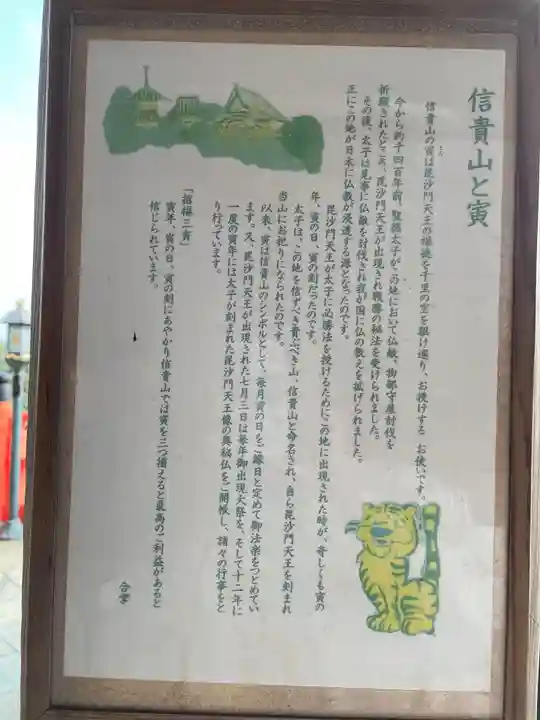 信貴山と寅
信貴山の寅は毘沙門天王の福徳を千里の空を駆け巡り、お授けする お使いです。
今から約千四百年前、聖徳太子がこの地において仏敵、物部守屋討伐を
祈願されたところ、毘沙門天王が出現され戦勝の秘法を受けられました。
その後、太子は見事に仏敵を討伐され我が国に仏の教えを拡げられました。
正にこの地が日本に仏教が浸透する源となったのです。
毘沙門天王が太子に必勝法を授けるためにこの地に出現された時が、奇しくも寅の
年、寅の日、寅の刻だったのです。
太子は、この地を信ずべき貴ぶべき山、信貴山と命名され、自ら毘沙門天王を刻まれ
当山にお祀りになられたのです。
以来、寅は信貴山のシンボルとして、毎月寅の日をご縁日と定めて御法楽をつとめてい
ます。又、毘沙門天王が出現された七月三日は毎年御出現大祭を、そして十二年に
一度の寅年には太子が刻まれた毘沙門天王像の奥秘仏をご開帳し、諸々の行事をと
り行っています。
「招福三寅」
寅年、寅の日、寅の刻にあやかり信貴山では寅を三つ揃えると最高のご利益があると
信じられています。
合掌